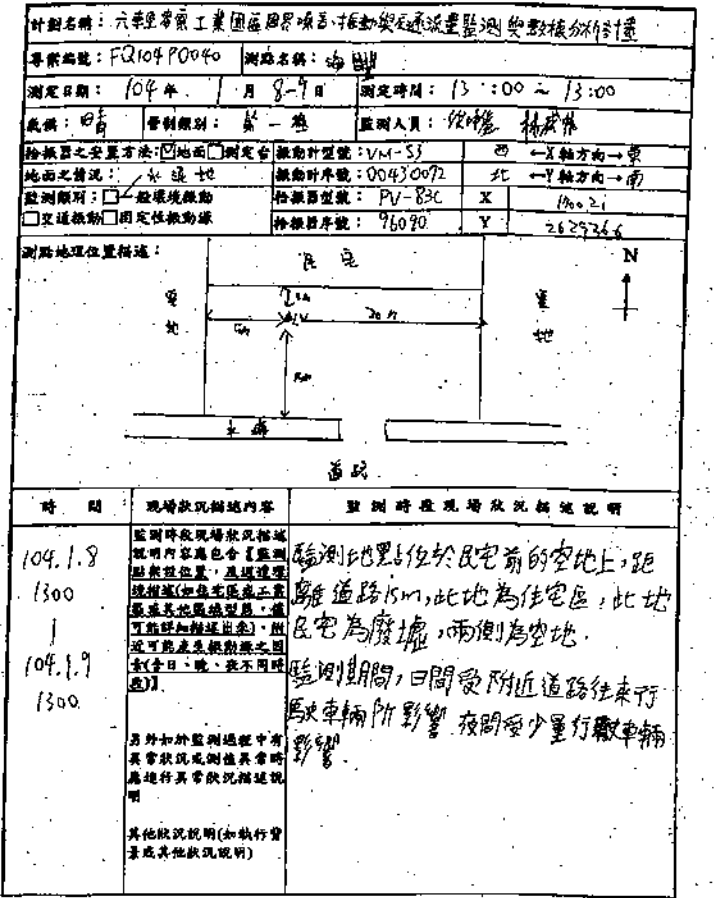 計劃名稱：六輕空氣工業園區周界噪音、振動與交通流量監測與數據分析計畫
專案編號：FQ104P0040 測點名稱：海豐
測定日期：104年 1月 8-9日 測定時間：13：00～13:00
氣候：晴 管制類別：第一種 監測人員：
拾振器之安置方法：☑地面□測定台 振動計型號：VM-53 西 ←X軸方向→東
地面之情況：水泥地 振動計序號：00430092 北 ←Y軸方向→南
監測類別：□一般環境振動 拾振器型號：PV-83C X
□交通振動□固定性振動源 拾振器序號：96090 Y
測點地理位置描述：
民宅
N
空地
空地
5m
20m
水溝
道路
時 間 現場狀況描述內容 監測時段現場狀況描述說明
104.1.8
1300
|
104.1.9
1300
監測時段現場狀況描述
說明內容應包含【監測
點架設位置，及週遭環
境描述(如住宅區或工業
區或其他區域型態，儘
可能詳細描述出來)，附
近可能產生振動源之因
素(含日、晚、夜不同時
段)】
另外如於監測過程中有
異常狀況或測值異常時
應進行異常狀況描述說
明
其他狀況說明(如執行背
景或其他狀況說明)
監測地點位於民宅前的空地上，距
離道路15m，此地為住宅區，此地
民宅為廢墟，兩側為空地.
監測期間，日間受附近道路往來行
駛車輛所影響.夜間受少量行駛車輛
影響.